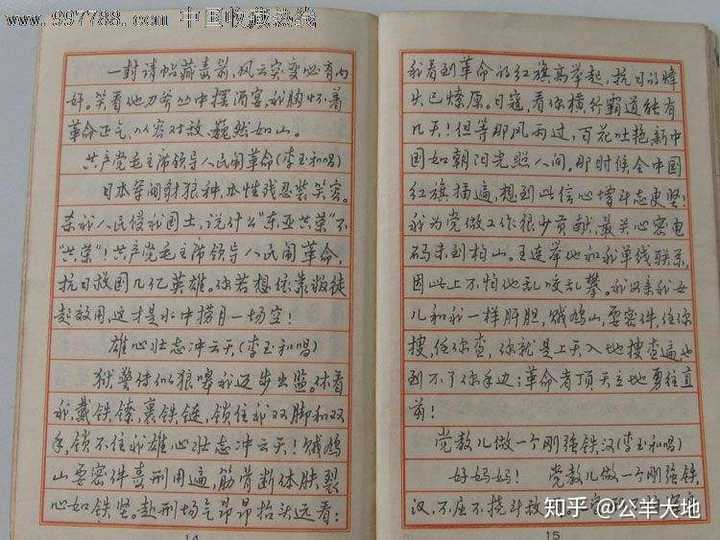 www.997788.com 中国收藏热线
一封请帖藏毒箭，风云突变必有内
奸。笑看他刀斧丛中摆酒宴，我胸怀着
革命正气，从容对敌，巍然如山。
共产党毛主席领导人民闹革命（李玉和唱）
日本军阀豺狼种，本性残忍装笑容。
杀我人民侵我国土，说什么“东亚共荣”不
“共荣”！共产党毛主席领导人民闹革命，
抗日救国几亿英雄。你若想依靠叛徒
起效用，这才是水中捞月一场空！
雄心壮志冲云天（李玉和唱）
狱警传似狼嗥我迈步出监。休看
我，戴铁镣裹铁链，锁住我双脚和双
手，锁不住我雄心壮志冲云天！贼鸠
山要密件毒刑用遍，筋骨断体肤裂
心如铁坚。赴刑场气昂昂抬头远看：
14
我看到革命的红旗高举起，抗日的烽
火已燎原。日寇，看你横行霸道能有
几天！但等那风雨过，百花吐艳，新中
国如朝阳光照人间。那时候全中国
红旗插遍，想到此信心增斗志更坚！
我为党做工作很少贡献，最关心密电
码未到柏山。王连举他和我单线联系，
因此上不怕他乱咬乱攀。我母亲我女
儿和我一样肝胆，贼鸠山，要密件，任你
搜，任你查，你就是上天入地搜查遍也
到不了你手边；革命者顶天立地勇往直
前！
党教儿做一个刚强铁汉（李玉和唱）
好妈妈！ 党教儿做一个刚强铁
汉，不屈不挠斗敌
15
知乎 @公羊大地